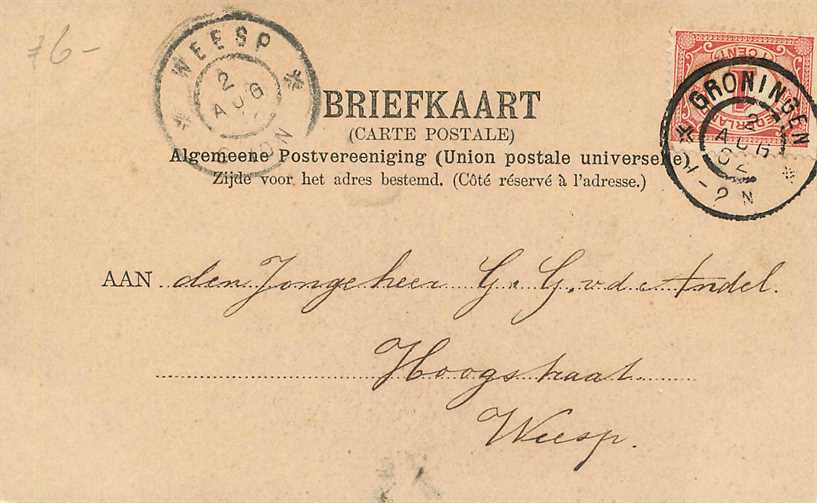 76-
WEESP
2
AUG
ON
GRONINGEN
2
AUG
02
1-2N
1 CENT
1
NEDERLAND
BRIEFKAART
(CARTE POSTALE)
Algemeene Postvereeniging (Union postale universelle)
Zijde voor het adres bestemd. (Côté réservé à l'adresse.)
AAN den Jongeheer G. G. v.d. Andel.
Hoogstraat
Weesp.